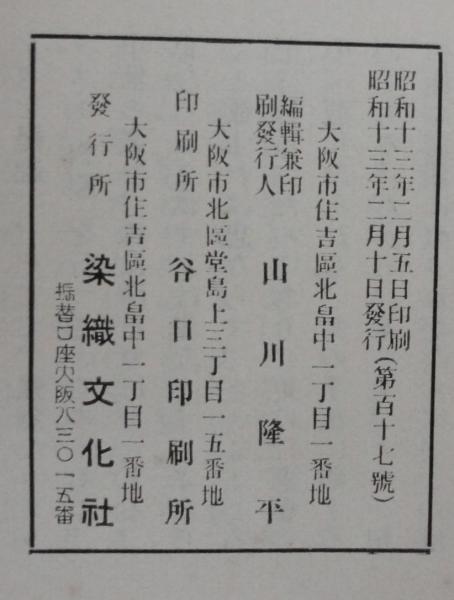 昭和十三年二月五日印刷
昭和十三年二月十日發行(第百十七號)
大阪市住吉區北畠中一丁目一番地
編輯兼印
刷發行人 山川隆平
大阪市北區堂島上三丁目一五番地
印刷所 谷口印刷所
大阪市住吉區北畠中一丁目一番地
發行所 染織文化社
振替口座大阪八三〇一五番